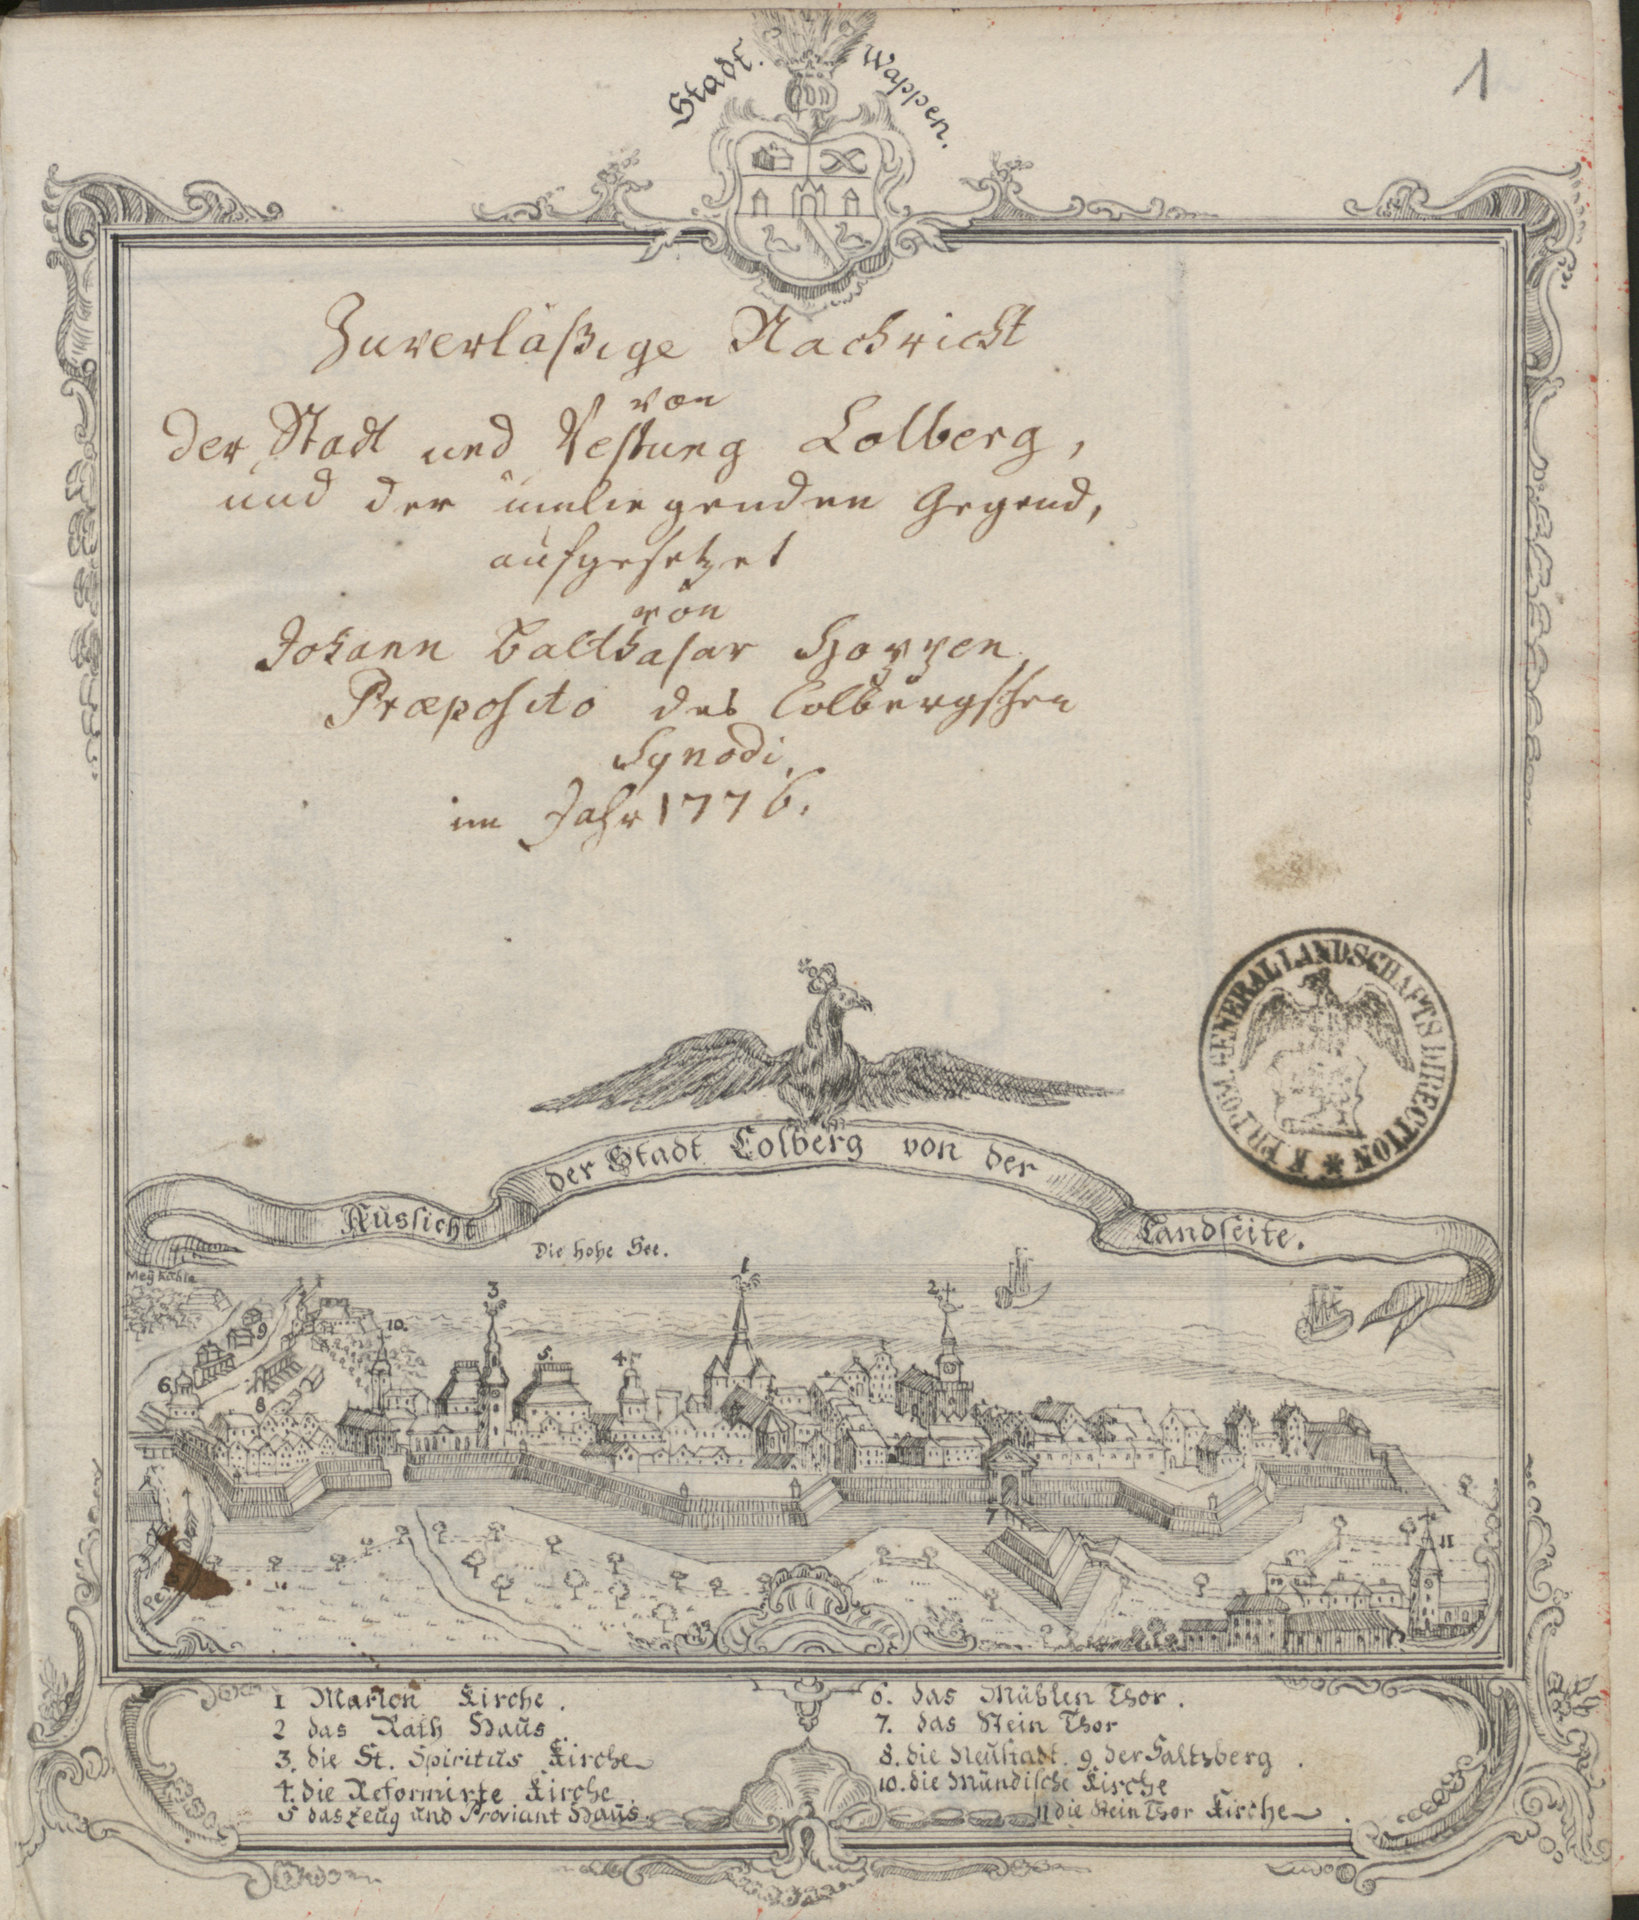 1
Stadt. Wappen.
Zuverläßige Nachricht
von
der Stadt und Vestung Colberg,
und der ümliegenden Gegend,
aufgesetzet
von
Johann Balthasar Hoppen
Præposito des Colbergschen
Synodi,
im Jahr 1776.
K. PR. POM. GENERAL LANDSCHAFTS DIRECTION *
Aussicht der Stadt Colberg von der Landseite.
Die hohe See.
Mey Kühle
1
2
3
4
5.
6
7
8
9
10.
11
Per
1 Marien Kirche.
2 das Rath Haus
3. die St. Spiritus Kirche
4. die Reformirte Kirche
5 das Zeug und Proviant Haus.
6. das Mühlen Thor.
7. das Stein Thor
8. die Neustadt. 9. der Saltzberg.
10. die Mündische Kirche
11 die Stein Thor Kirche.